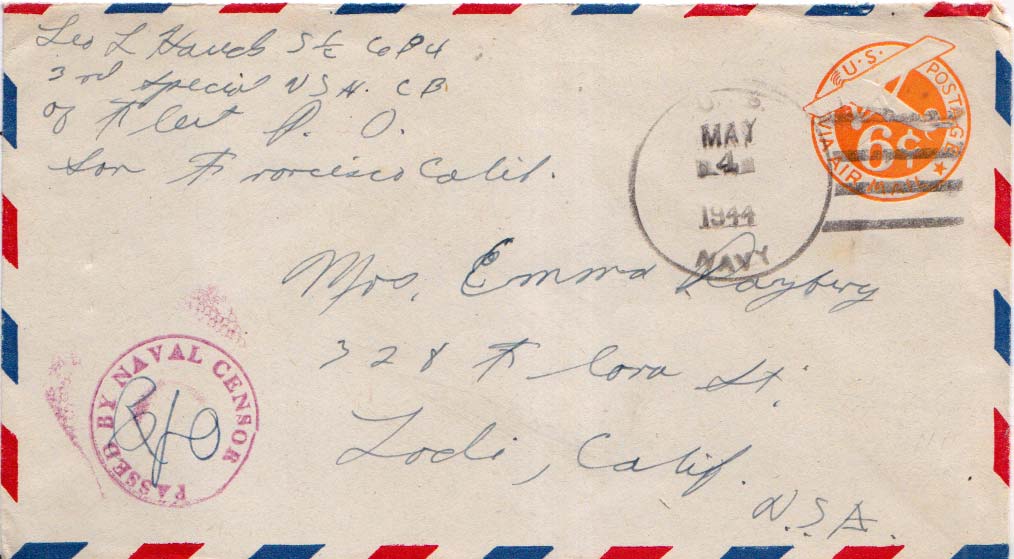 Leo L Hauck S 1/c Co B 4
3rd Special U S N. C B
% Fleet P. O.
San Francisco Calif.
U. S.
MAY
4
1944
NAVY
U.S. POSTAGE
VIA AIR MAIL
6¢
Mrs. Emma
328 Flora St.
Lodi, Calif.
U.S.A.
PASSED BY NAVAL CENSOR